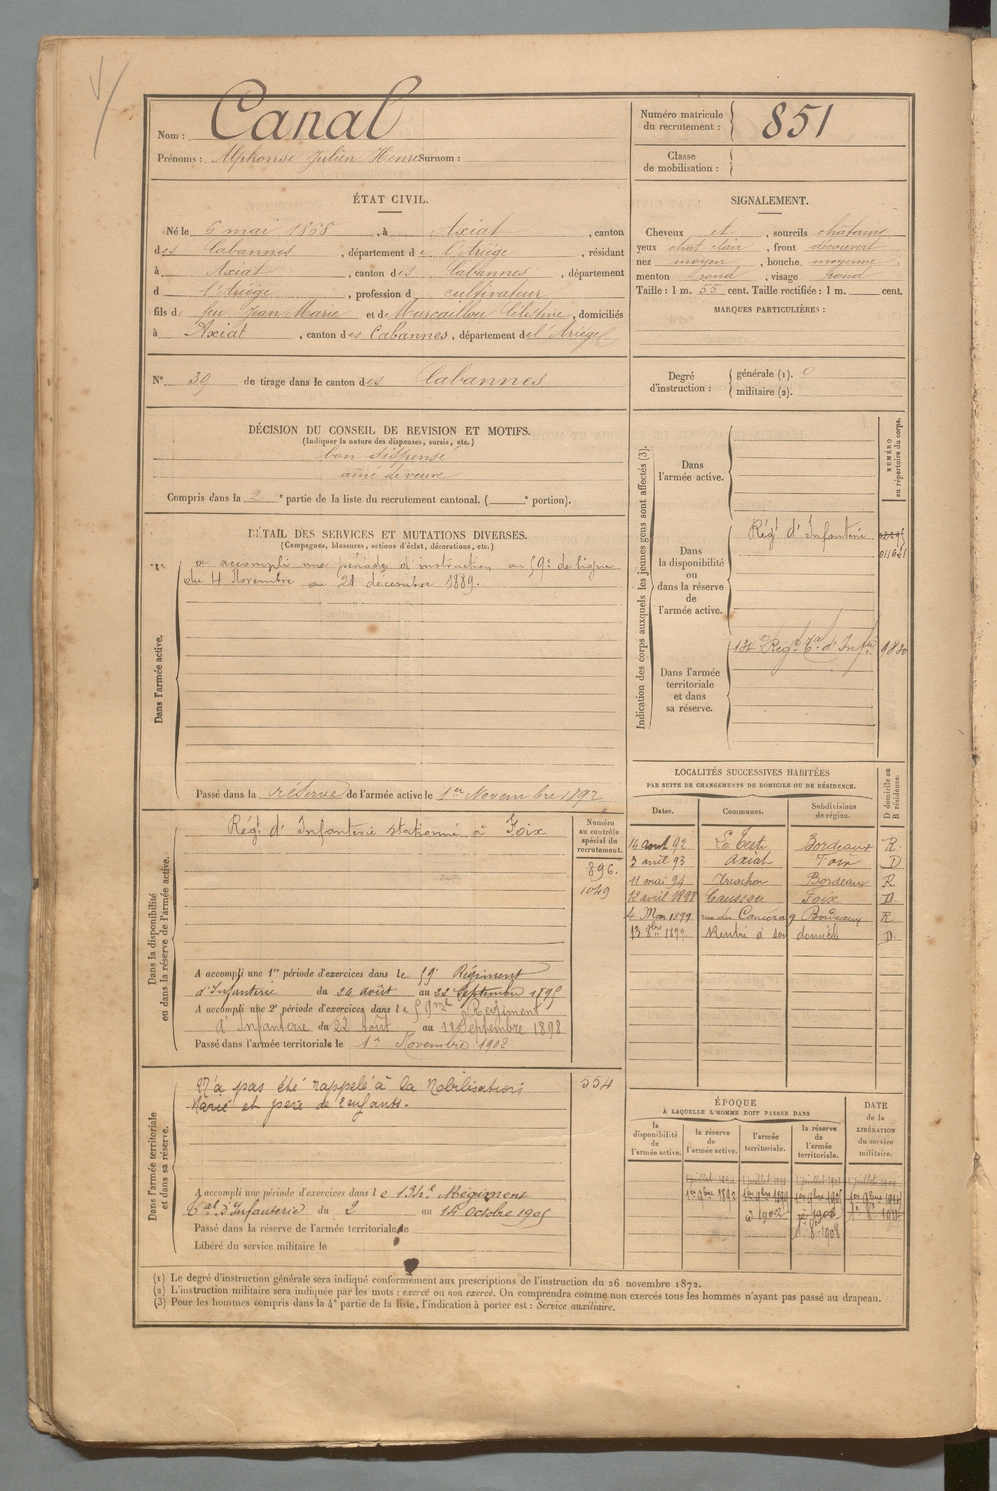 Nom : Canal
Prénoms : Alphonse Julien Henri Surnom :
Numéro matricule du recrutement : 851
Classe de mobilisation :
ÉTAT CIVIL.
Né le 6 mai 1868, à Axiat, canton
des Cabannes, département de l'Ariège, résidant
à Axiat, canton des Cabannes, département
d l'Ariège, profession d cultivateur
fils de feu Jean Marie et de Marcaillou Célestine, domiciliés
à Axiat, canton des Cabannes, département de l'Ariège
N° 39 de tirage dans le canton des Cabannes
SIGNALEMENT.
Cheveux et, sourcils châtains
yeux chat clair, front découvert
nez moyen, bouche moyenne,
menton rond, visage rond
Taille : 1 m. 55 cent. Taille rectifiée : 1 m. cent.
MARQUES PARTICULIÈRES :
Degré d'instruction : générale (1). 0
militaire (2).
DÉCISION DU CONSEIL DE REVISION ET MOTIFS.
(Indiquer la nature des dispenses, sursis, etc.)
bon dispensé
aîné de veuve
Compris dans la 2e partie de la liste du recrutement cantonal. ( e portion).
DÉTAIL DES SERVICES ET MUTATIONS DIVERSES.
(Campagnes, blessures, actions d'éclat, décorations, etc.)
Dans l'armée active.
a accompli une période d'instruction au 59e de ligne
du 4 Novembre au 21 décembre 1889.
Passé dans la réserve de l'armée active le 1er Novembre 1892
Indication des corps auxquels les jeunes gens sont affectés (3).
NUMÉRO au répertoire du corps.
Dans l'armée active.
Dans la disponibilité ou dans la réserve de l'armée active.
Régt d'Infanterie
Dans l'armée territoriale et dans sa réserve.
134e Régt tal d'Infie
LOCALITÉS SUCCESSIVES HABITÉES
PAR SUITE DE CHANGEMENTS DE DOMICILE OU DE RÉSIDENCE.
D domicile ou R résidence.
Dates. Communes. Subdivisions de région.
14 aout 92 La Teste Bordeaux R
3 avril 93 Axiat Foix D
11 mai 94 Arcachon Bordeaux R
12 avril 1898 Caussou Foix D
4 Mars 1899 rue du Bordeaux R
13 8bre 1899. Rentré à son domicile D
Dans la disponibilité ou dans la réserve de l'armée active.
Numéro au contrôle spécial du recrutement.
Régt d'Infanterie stationné à Foix
896.
1049
A accompli une 1re période d'exercices dans le 59e Régiment
d'Infanterie du 26 août au 22 Septembre 1895
A accompli une 2e période d'exercices dans le 59me Régiment
d'Infanterie du 22 Août au 18 Septembre 1898
Passé dans l'armée territoriale le 1er Novembre 1902
Dans l'armée territoriale et dans sa réserve.
N'a pas été rappelé à la Mobilisation
Marié et père de enfants.
554
A accompli une période d'exercices dans le 134e Régiment
tal d'Infanterie du 2 au 14 octobre 1905
Passé dans la réserve de l'armée territoriale le
Libéré du service militaire le
ÉPOQUE
À LAQUELLE L'HOMME DOIT PASSER DANS
la disponibilité de l'armée active.
la réserve de l'armée active.
l'armée territoriale.
la réserve de l'armée territoriale.
DATE de la LIBÉRATION du service militaire.
1er 9bre 1892
1902
1908
(1) Le degré d'instruction générale sera indiqué conformément aux prescriptions de l'instruction du 26 novembre 1872.
(2) L'instruction militaire sera indiquée par les mots : exercé ou non exercé. On comprendra comme non exercés tous les hommes n'ayant pas passé au drapeau.
(3) Pour les hommes compris dans la 4e partie de la liste, l'indication à porter est : Service auxiliaire.